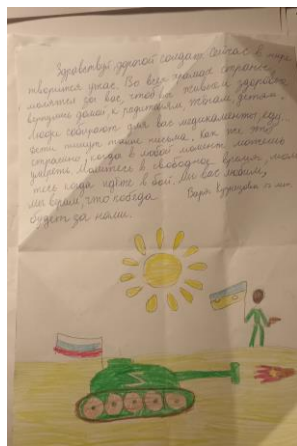 Здравствуй дорогой солдат! Сейчас в мире
творится ужас. Во всех храмах страны
молятся за вас, чтобы живыми здоровыми
вернулись домой к родителям, жёнам, детям.
Люди собирают для вас медикаменты, еду.
Дети пишут такие письма. Как же это
страшно, когда в любой момент можешь
умереть. Молитесь в свободное время, моли
тесь когда идёте в бой. Мы вас любим,
мы верим, что победа
будет за нами.
Варя лет.